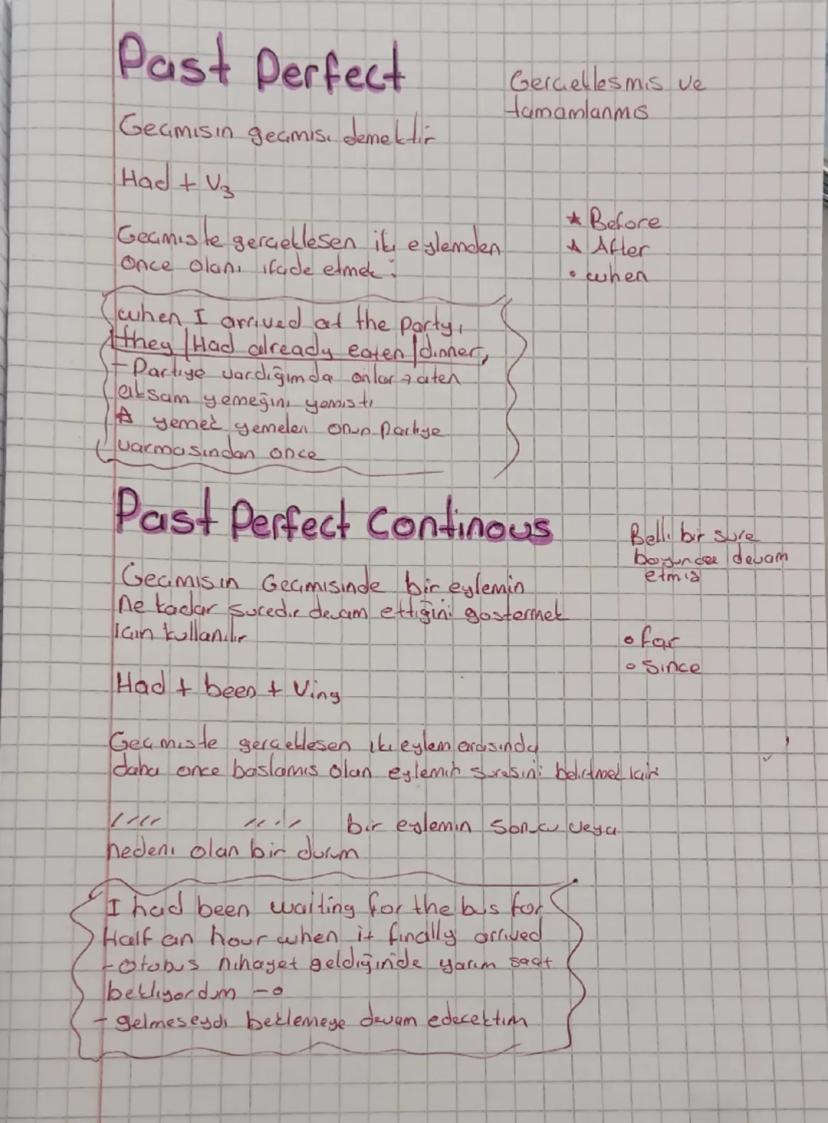 Past Perfect
Gercekleşmis ve
tamamlanmıs
Gecmisin gecmisi demektir
Had + V3
Gecmiste gerceklesen iki eylemden
once olanı ifade etmek:
★ Before
★ After
• when
when I arrived at the Party,
they |Had already eaten| dinner,
- Partiye vardığımda onlar zaten
aksam yemeğini yemisti
☆ yemek yemeleri onun partiye
varmasından once
Past Perfect Continous
Belli bir sure
boyunca devam
etmis
Gecmisin Gecmisinde bir eylemin
ne kadar surecedir devam ettiğini gostermek
icin kullanılır
• for
• since
Had + been + Ving
Gecmiste gerceklesen iki eylem arasında
daha once baslamıs olan eylemin suresini belirtmek icin
//// //// bir eylemin sonucu veya
nedeni olan bir durum
I had been waiting for the bus for
Half an hour when it finally arrived
- otobus nihayet geldiğinde yarım saat
bekliyordum -o
- gelmeseydi beklemeye devam edecektim